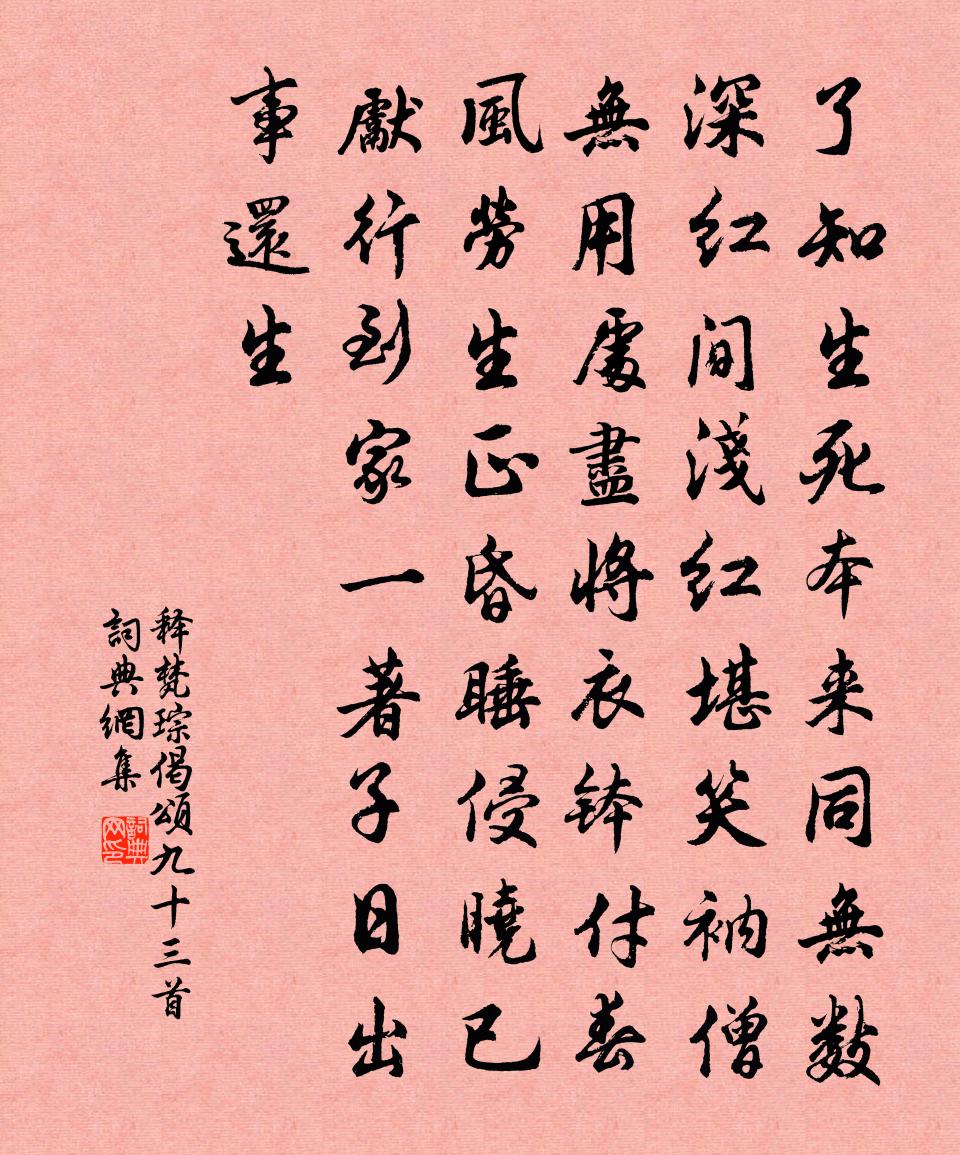 了知生死本来同無数
深紅間淺紅堪笑衲僧
無用處盡將衣鉢付春
風勞生正昏睡侵曉已
獻行到家一著子日出
事還生
释梵琮偈頌九十三首
詞典網集
詞典网印